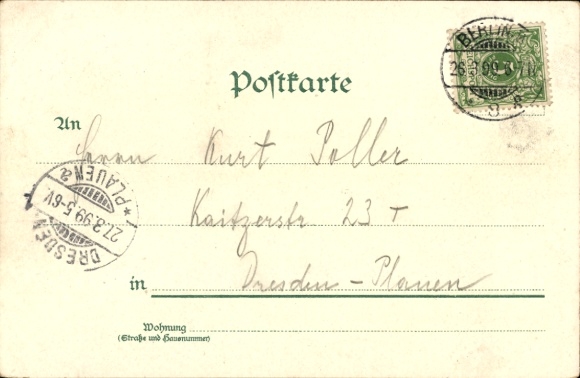 BERLIN
26.3.99.
Postkarte
An
Herrn Kurt Poller
Kaitzerstr 23 I
in Dresden-Plauen
DRESDEN * PLAUEN a
27.3.99.5-6V.
1
Wohnung
(Straße und Hausnummer)